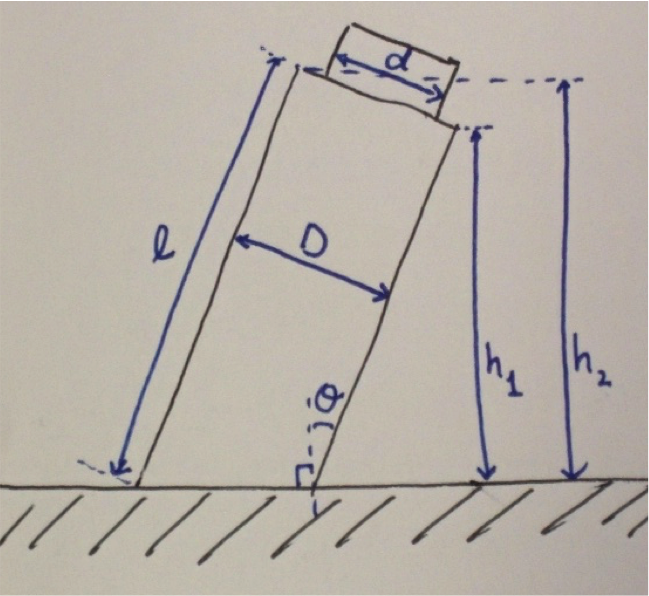 d
l
D
h₁
h₂
θ